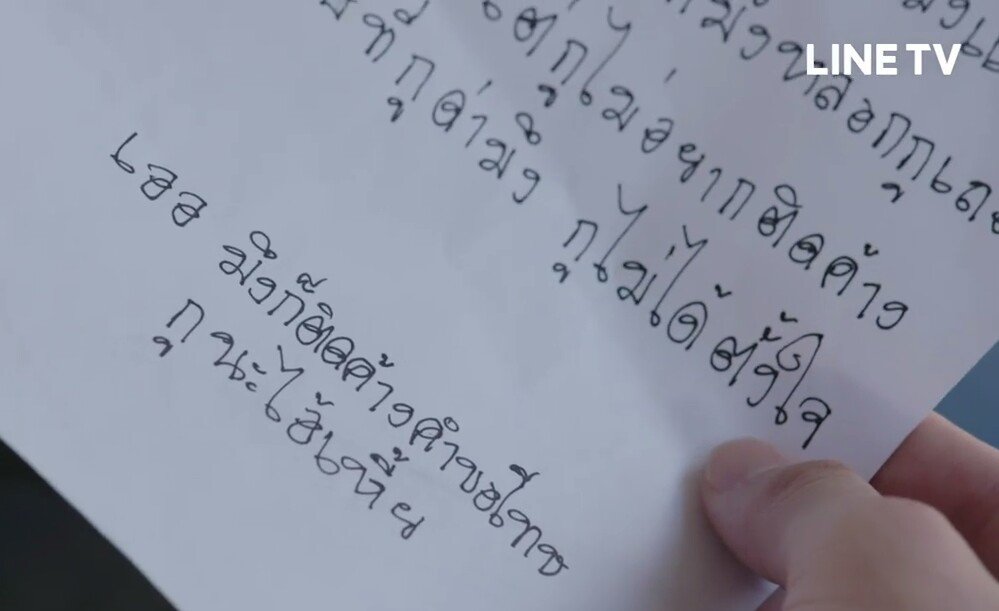 LINE TV
มึงหลอกกู
กูไม่อยากติดค้าง
ที่กูด่ามึง กูไม่ได้ตั้งใจ
เออ มึงก็ติดค้างคำขอโทษ
กูนะไอ้เหี้ย